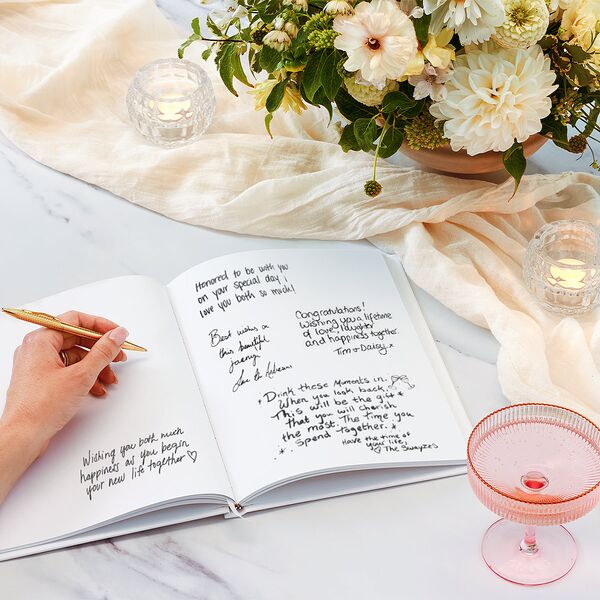 Wishing you both much
happiness as you begin
your new life together ♡
Honored to be with you
on your special day I
love you both so much!
Best wishes on
this beautiful
Congratulations!
Wishing you a lifetime
of love, laughter
and happiness together.
Tim + Daisy
Drink these moments in.
When you look back
This will be the gift
that you will cherish
the most. The time you
spend together.
Have the time of
your life,
♡ The Swayzes